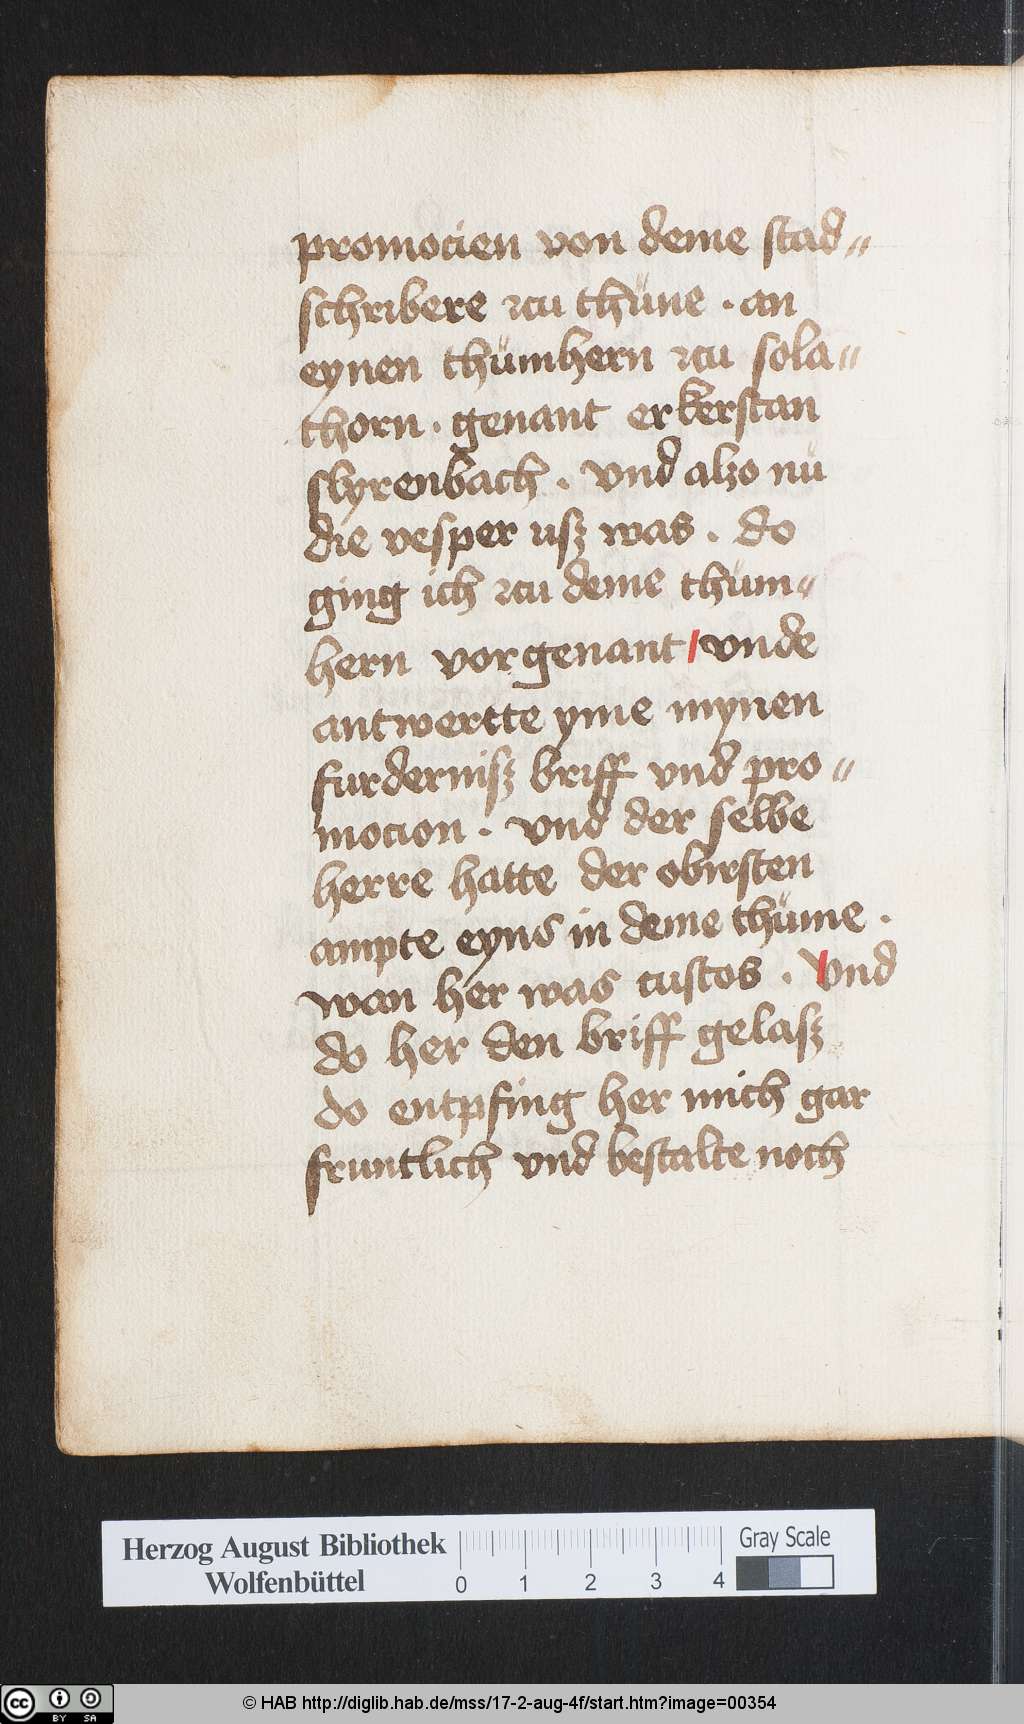 promocien von deme stad〃
schribere zcu thüne · an
eynen thümhern zcu sola〃
thorn · genant er kerstan
slyrenbach · vnd alzo nü
die vesper usz was · do
ging ich zcu deme thum〃
hern vorgenant / vnde
antwertte yme mynen
furdernisz briff vnd pro〃
mocion · vnd der selbe
herre hatte der obirsten
ampte eyns in deme thüme ·
wan her was custos · Vnd
do her den briff gelasz
do entpfing her mich gar
fruntlich vnd bestalte noch
Herzog August Bibliothek
Wolfenbüttel
0 1 2 3 4
Gray Scale
cc BY SA
© HAB http://diglib.hab.de/mss/17-2-aug-4f/start.htm?image=00354